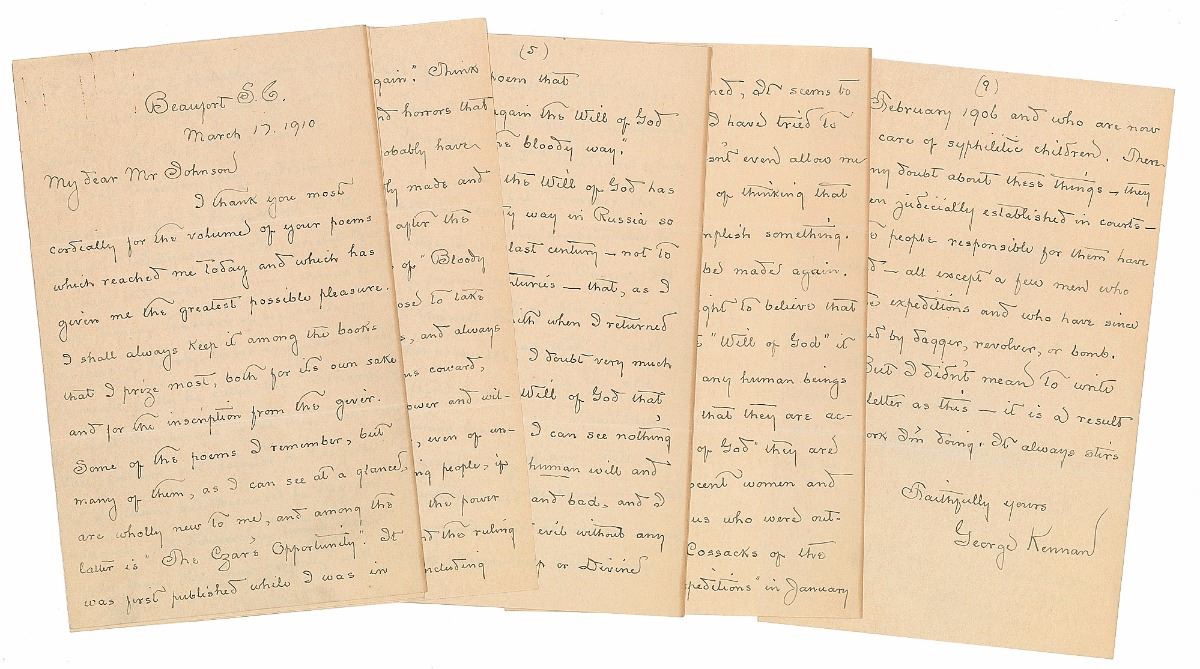 Beaufort S.C.
March 17. 1910
My dear Mr Johnson
I thank you most
cordially for the volume of your poems
which reached me today and which has
given me the greatest possible pleasure.
I shall always keep it among the books
that I prize most, both for its own sake
and for the inscription from the giver.
Some of the poems I remember, but
many of them, as I can see at a glance,
are wholly new to me, and among the
latter is "The Czar's Opportunity". It
was first published while I was in
gain". Think
nd horrors that
obably have
ly made and
after the
of "Bloody
ose to take
s, and always
us coward,
ower and wil-
, even of un-
ng people, if
the power
nd the ruling
ncluding
(5)
poem that
again the Will of God
he bloody way".
the Will of God has
ty way in Russia so
last century — not to
nturies — that, as I
ith when I returned
I doubt very much
Will of God that
I can see nothing
human will and
and bad, and I
evil without any
p or Divine
ned, It seems to
I have tried to
sn't even allow me
of thinking that
mplish something.
be made again.
ght to believe that
"Will of God" if
any human beings
that they are ac-
of God" they are
ocent women and
us who were out-
Cossacks of the
peditions" in January
(9)
February 1906 and who are now
care of syphilitic children. There
ny doubt about these things — they
en judicially established in courts —
e people responsible for them have
d — all except a few men who
e expeditions and who have since
ed by dagger, revolver, or bomb.
But I didn't mean to write
letter as this — it is a result
ork I'm doing. It always stirs
Faithfully yours
George Kennan